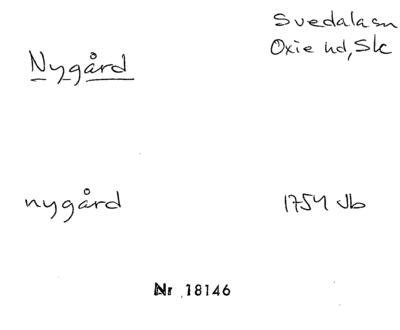 Svedala sn
Oxie hd, Sk
Nygård
nygård
1754 Jb
Nr 18146